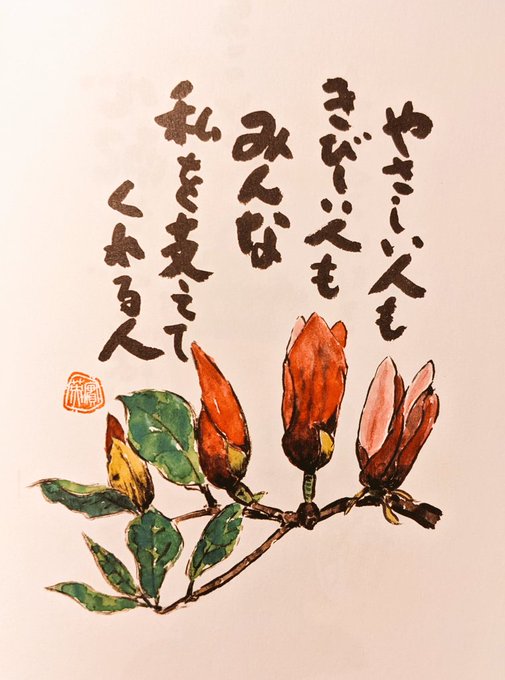 やさしい人も
きびしい人も
みんな
私を支えて
くれる人